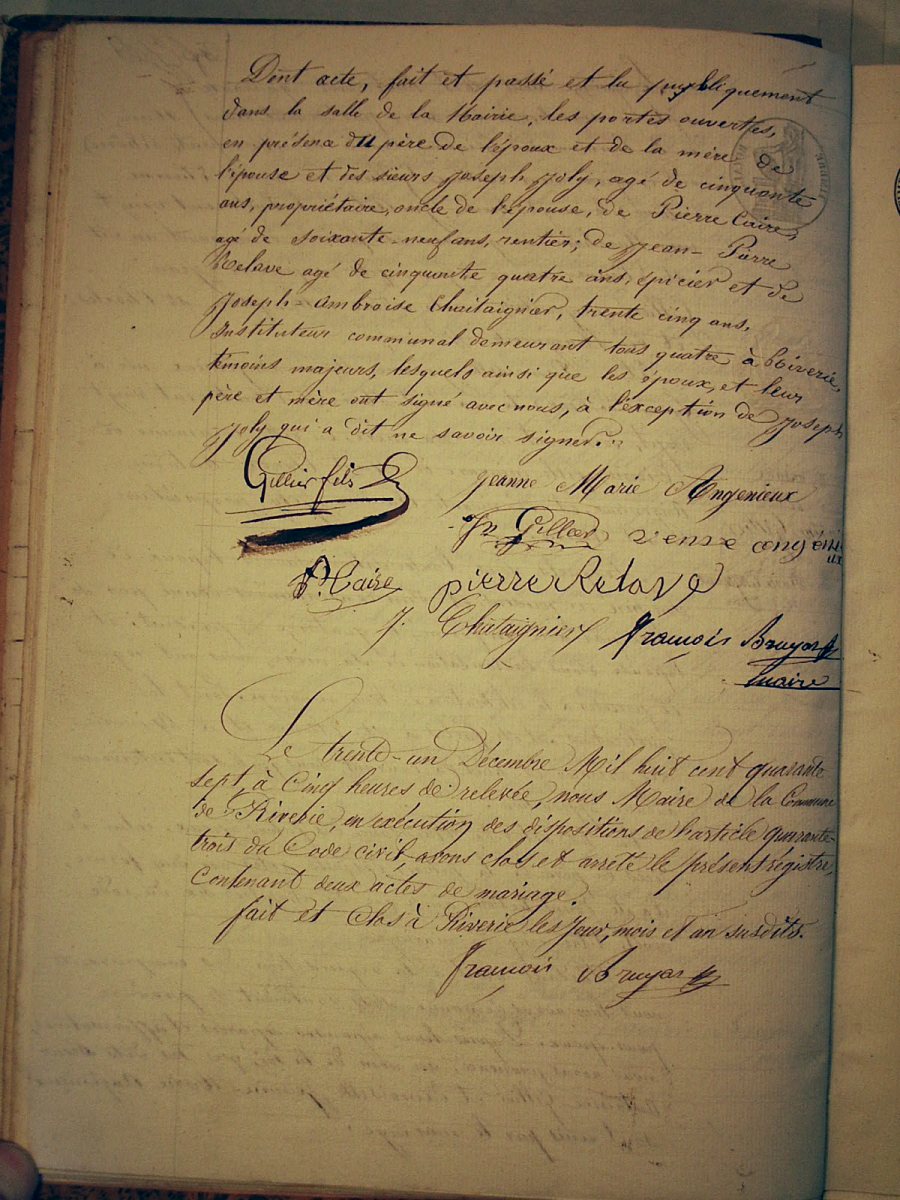 Dont acte, fait et passé et lu publiquement
dans la salle de la Mairie, les portes ouvertes,
en présence du père de l'époux et de la mère de
l'épouse et des sieurs Joseph Joly, agé de cinquante
ans, propriétaire, oncle de l'épouse, de Pierre Caire,
agé de soixante-neuf ans, rentier; de Jean-Pierre
Relave agé de cinquante quatre ans, épicier et de
Joseph-Ambroise Chataignier, trente cinq ans,
instituteur communal demeurant tous quatre à Riverie,
témoins majeurs, lesquels ainsi que les époux, et leur
père et mère ont signé avec nous, à l'exception de Joseph
Joly qui a dit ne savoir signer.
Gillier fils Jeanne Marie Angenieux
Gillier
P. Caire pierre Relave
J. Chataignier françois Bruyas
maire
Le trente-un Décembre Mil huit cent quarante
sept, à Cinq heures de relevée, nous Maire de la Commune
de Riverie, en exécution des dispositions de l'article quarante-
trois du Code civil, avons clos et arrêté le présent régistre,
contenant deux actes de mariage.
fait et Clos à Riverie les jour, mois et an susdits.
françois Bruyas